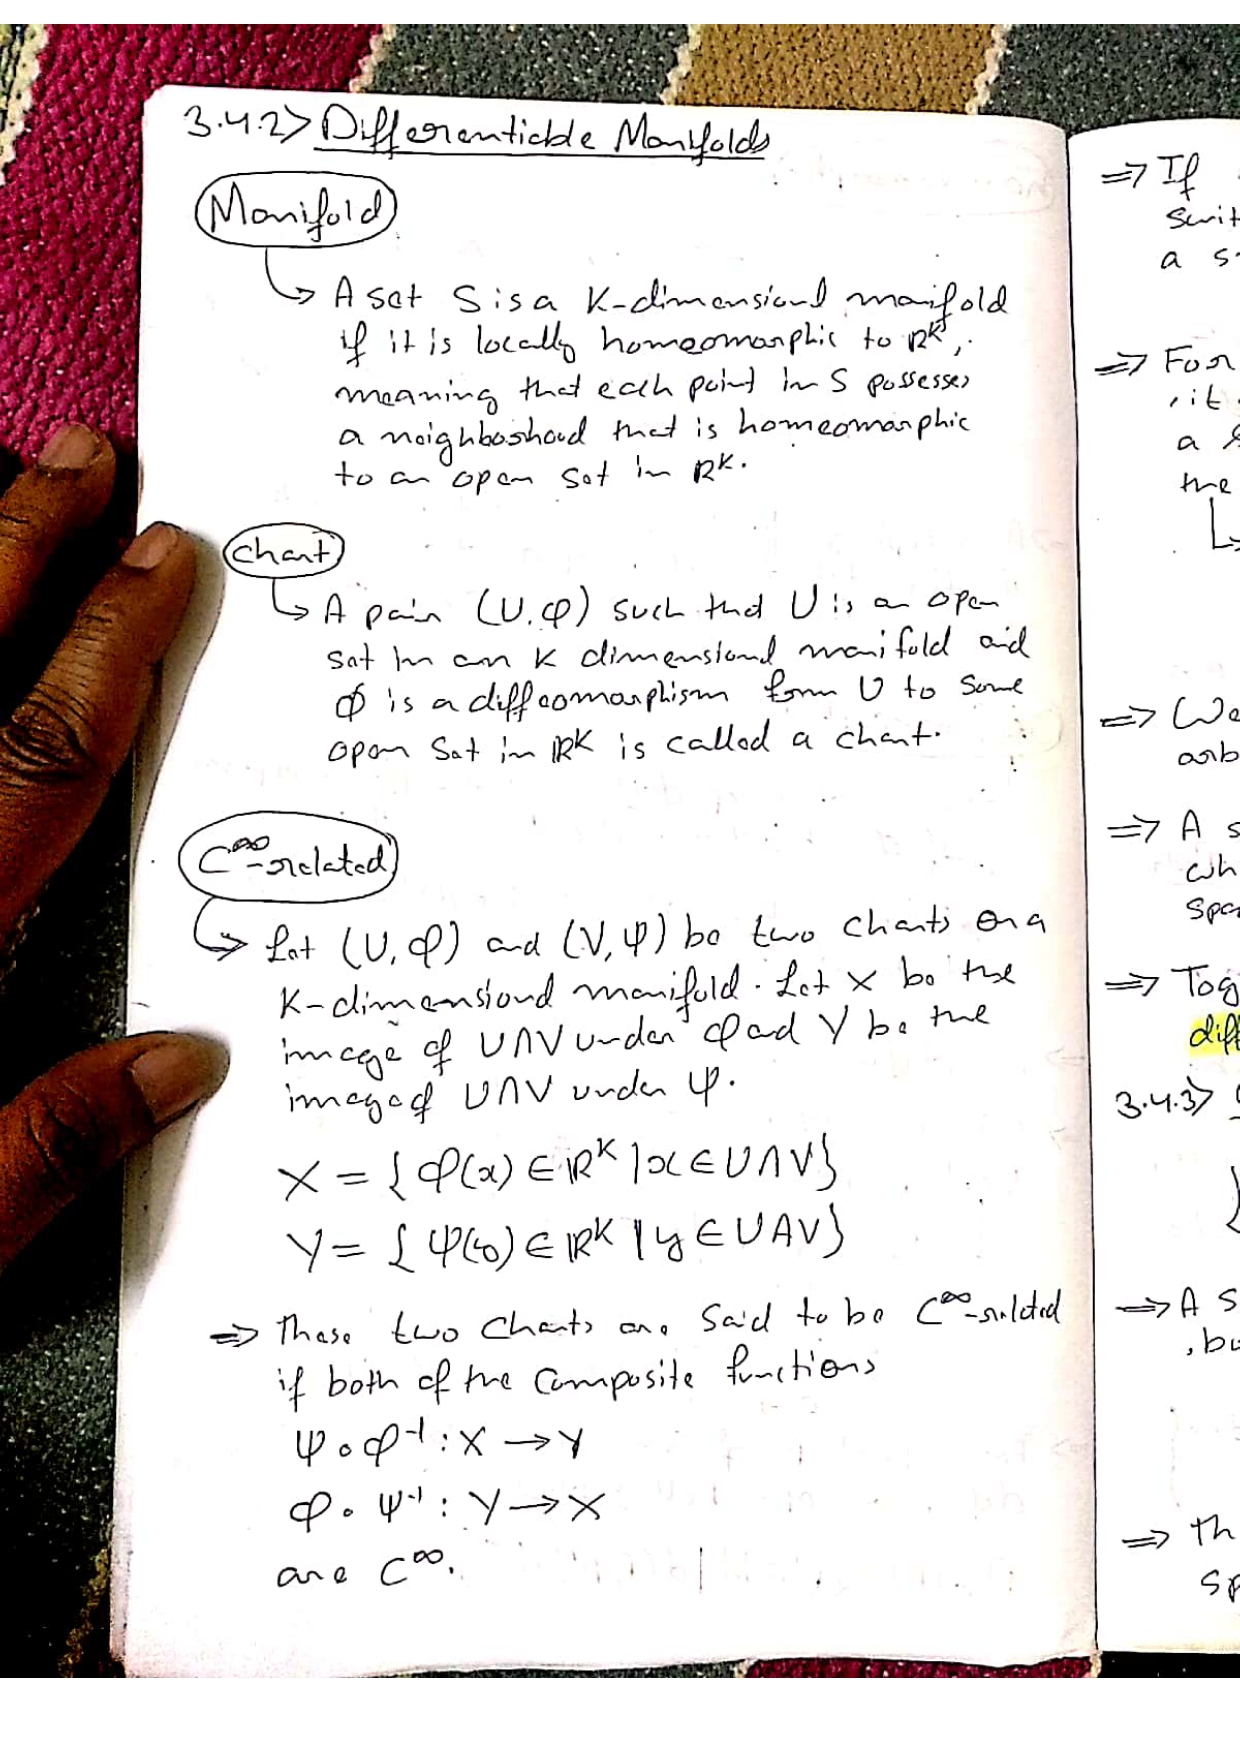 3.4.2> Differentiable Manifolds
Manifold
↳ A set S is a K-dimensional manifold
if it is locally homeomorphic to ℝᴷ,
meaning that each point in S possesses
a neighborhood that is homeomorphic
to an open set in ℝᴷ.
Chart
↳ A pair (U, φ) such that U is an open
set in an K dimensional manifold and
φ is a diffeomorphism from U to some
open set in ℝᴷ is called a chart.
C^∞-related
↳ Let (U, φ) and (V, ψ) be two charts on a
K-dimensional manifold. Let X be the
image of U∩V under φ and Y be the
image of U∩V under ψ.
X = {φ(x) ∈ ℝᴷ | x ∈ U∩V}
Y = {ψ(y) ∈ ℝᴷ | y ∈ U∩V}
⇒ These two charts are said to be C^∞-related
if both of the composite functions
ψ∘φ⁻¹ : X → Y
φ∘ψ⁻¹ : Y → X
are C^∞.
⇒ If
a
⇒ For
, it
a
the
↳
⇒ We
⇒ A
⇒
3.4.3>
⇒ A